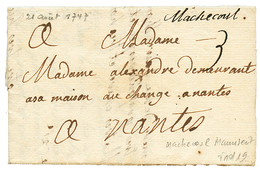 21 août 1747
Machecoul.
A Madame 3
Madame alexandre demeurant
a sa maison au change a nantes
A nantes
machecoul manuscrit
ind 19